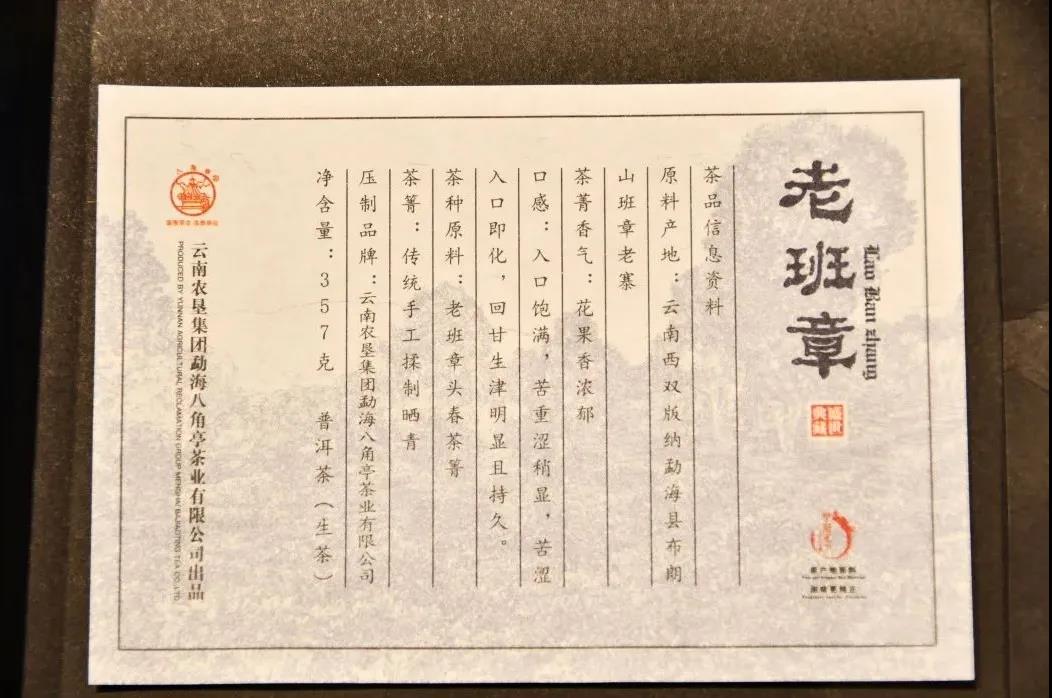 老班章
Lao Ban zhang
盛世
典藏
茶品信息资料
原料产地：云南西双版纳勐海县布朗
山班章老寨
茶菁香气：花果香浓郁
口感：入口饱满，苦重涩稍显，苦涩
入口即化，回甘生津明显且持久。
茶种原料：老班章头春茶箐
茶箐：传统手工揉制晒青
压制品牌：云南农垦集团勐海八角亭茶业有限公司
净含量：357克 普洱茶（生茶）
云南农垦集团勐海八角亭茶业有限公司出品
PRODUCED BY YUNNAN AGRICULTURAL RECLAMATION GROUP MENGHAI BAJIAOTING TEA CO.,LTD